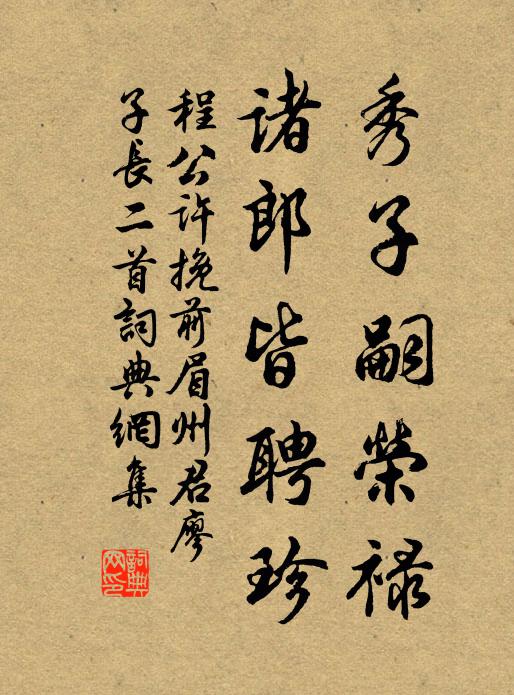 秀子嗣榮祿
諸郎皆聘珍
程公許挽前眉州君廖
子長二首詞典網集
詞典網印